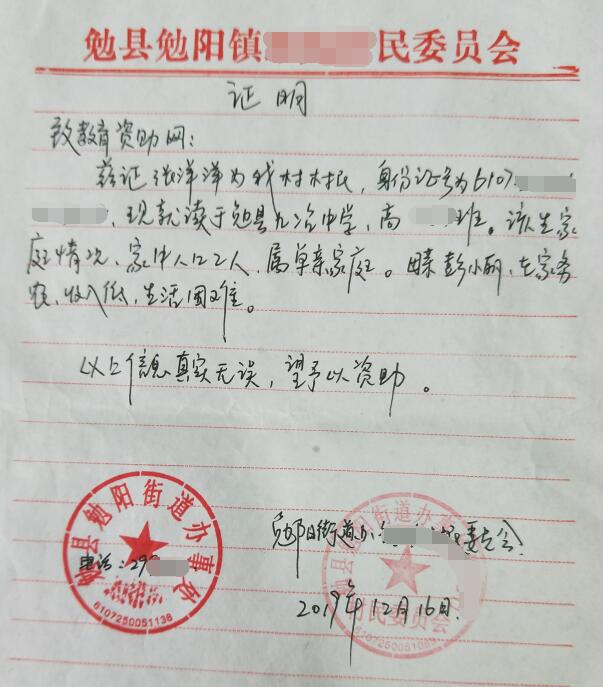 勉县勉阳镇 民委员会
证明
致教育资助网：
兹证张洋洋为我村村民，身份证号为6107
，现就读于勉县九冶中学，高 班。该生家
庭情况，家中人口2人，属单亲家庭。母亲彭小丽，在家务
农，收入低，生活困难。
以上信息真实无误，望予以资助。
勉阳街道办 委员会
电话：29
2019年12月16日.
勉县勉阳街道办事处
6107250051138
勉县勉阳街道办事
村民委员会